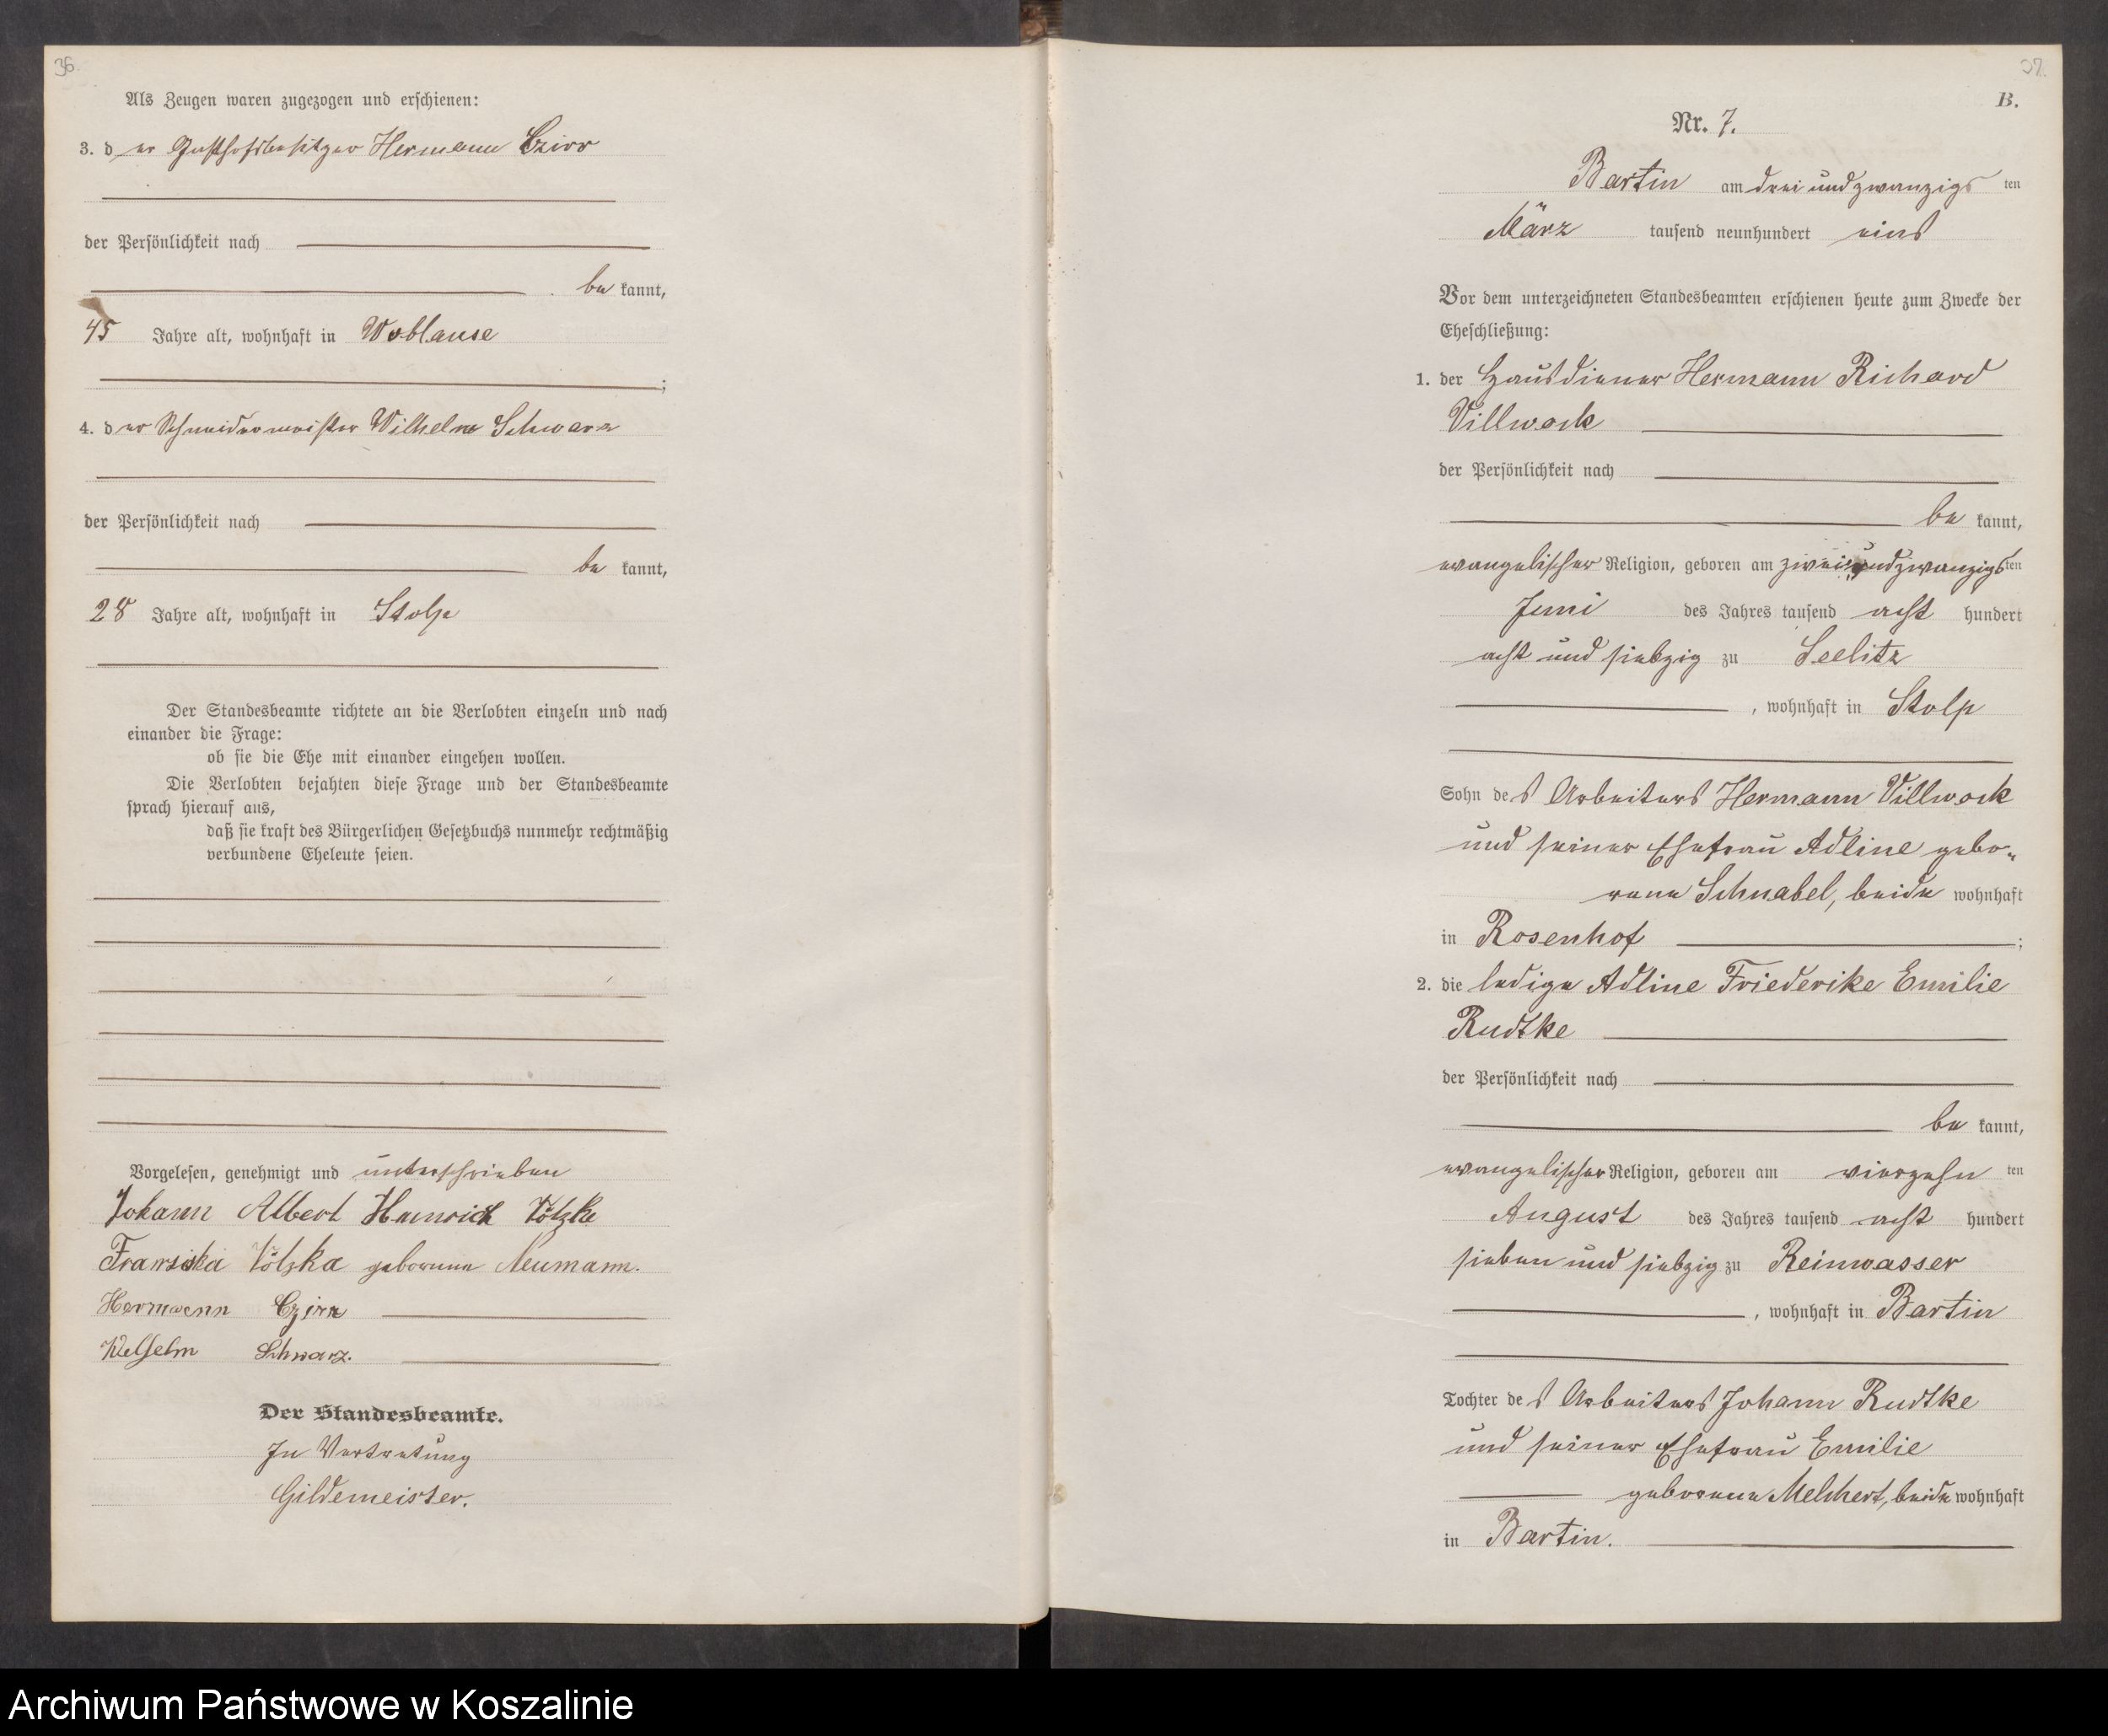 36.
Als Zeugen waren zugezogen und erschienen:
3. der Gasthofsbesitzer Hermann Czirr
der Persönlichkeit nach
be kannt,
45 Jahre alt, wohnhaft in Woblanse
;
4. der Schneidermeister Wilhelm Schwarz
der Persönlichkeit nach
be kannt,
28 Jahre alt, wohnhaft in Stolp
Der Standesbeamte richtete an die Verlobten einzeln und nach
einander die Frage:
ob sie die Ehe mit einander eingehen wollen.
Die Verlobten bejahten diese Frage und der Standesbeamte
sprach hierauf aus,
daß sie kraft des Bürgerlichen Gesetzbuchs nunmehr rechtmäßig
verbundene Eheleute seien.
Vorgelesen, genehmigt und unterschrieben
Johann Albert Heinrich Völzke
Franziska Völzka geborene Neumann.
Hermann Czirr
Wilhelm Schwarz.
Der Standesbeamte.
In Vertretung
Gildemeister.
37.
B.
Nr. 7.
Bartin am drei und zwanzigs ten
März tausend neunhundert eins
Vor dem unterzeichneten Standesbeamten erschienen heute zum Zwecke der
Eheschließung:
1. der Hausdiener Hermann Richard
Villwock
der Persönlichkeit nach
be kannt,
evangelischer Religion, geboren am zwei und zwanzigs ten
Juni des Jahres tausend acht hundert
acht und siebzig zu Seelitz
, wohnhaft in Stolp
Sohn des Arbeiters Hermann Villwock
und seiner Ehefrau Adline gebo-
rene Schnabel, beide wohnhaft
in Rosenhof ;
2. die ledige Adline Friederike Emilie
Rudtke
der Persönlichkeit nach
be kannt,
evangelischer Religion, geboren am vierzehn ten
August des Jahres tausend acht hundert
sieben und siebzig zu Reinwasser
, wohnhaft in Bartin
Tochter des Arbeiters Johann Rudtke
und seiner Ehefrau Emilie
geborene Melchert, beide wohnhaft
in Bartin.
Archiwum Państwowe w Koszalinie